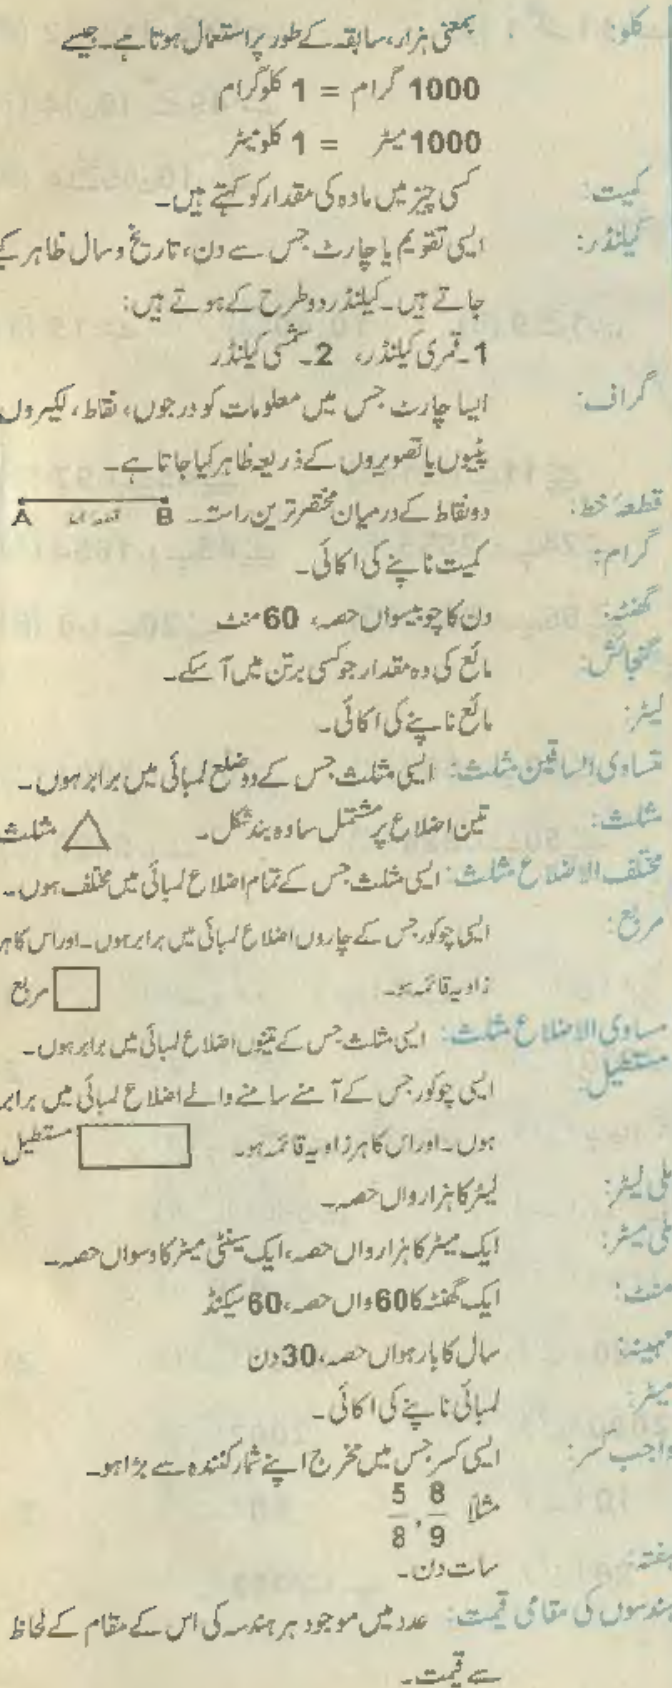 کلو: بمعنی ہزار، سابقہ کے طور پر استعمال ہوتا ہے۔ جیسے
1000 گرام = 1 کلوگرام
1000 میٹر = 1 کلومیٹر
کمیت: کسی چیز میں مادہ کی مقدار کو کہتے ہیں۔
کیلنڈر: ایسی تقویم یا چارٹ جس سے دن، تاریخ و سال ظاہر کیے
جاتے ہیں۔ کیلنڈر دو طرح کے ہوتے ہیں:
1۔ قمری کیلنڈر، 2۔ شمسی کیلنڈر
گراف: ایسا چارٹ جس میں معلومات کو درجوں، نقاط، لکیروں
پٹیوں یا تصویروں کے ذریعہ ظاہر کیا جاتا ہے۔
قطعۂ خط: دو نقاط کے درمیان مختصر ترین راستہ۔ A B
گرام: کمیت ناپنے کی اکائی۔
گھنٹہ: دن کا چوبیسواں حصہ، 60 منٹ
گنجائش: مائع کی وہ مقدار جو کسی برتن میں آ سکے۔
لیٹر: مائع ناپنے کی اکائی۔
تساوی الساقین مثلث: ایسی مثلث جس کے دو ضلع لمبائی میں برابر ہوں۔
مثلث: تین اضلاع پر مشتمل سادہ بند شکل۔ مثلث
مختلف الاضلاع مثلث: ایسی مثلث جس کے تمام اضلاع لمبائی میں مختلف ہوں۔
مربع: ایسی چوکور جس کے چاروں اضلاع لمبائی میں برابر ہوں۔ اور اس کا ہر
زاویہ قائمہ ہو۔ مربع
مساوی الاضلاع مثلث: ایسی مثلث جس کے تینوں اضلاع لمبائی میں برابر ہوں۔
مستطیل: ایسی چوکور جس کے آمنے سامنے والے اضلاع لمبائی میں برابر
ہوں۔ اور اس کا ہر زاویہ قائمہ ہو۔ مستطیل
ملی لیٹر: لیٹر کا ہزارواں حصہ۔
ملی میٹر: ایک میٹر کا ہزارواں حصہ، ایک سینٹی میٹر کا دسواں حصہ۔
منٹ: ایک گھنٹہ کا 60 واں حصہ، 60 سیکنڈ
مہینہ: سال کا بارہواں حصہ، 30 دن
میٹر: لمبائی ناپنے کی اکائی۔
واجب کسر: ایسی کسر جس میں مخرج اپنے شمار کنندہ سے بڑا ہو۔
مثلاً 8/9 ، 5/8
ہفتہ: سات دن۔
ہندسوں کی مقامی قیمت: عدد میں موجود ہر ہندسہ کی اس کے مقام کے لحاظ
سے قیمت۔